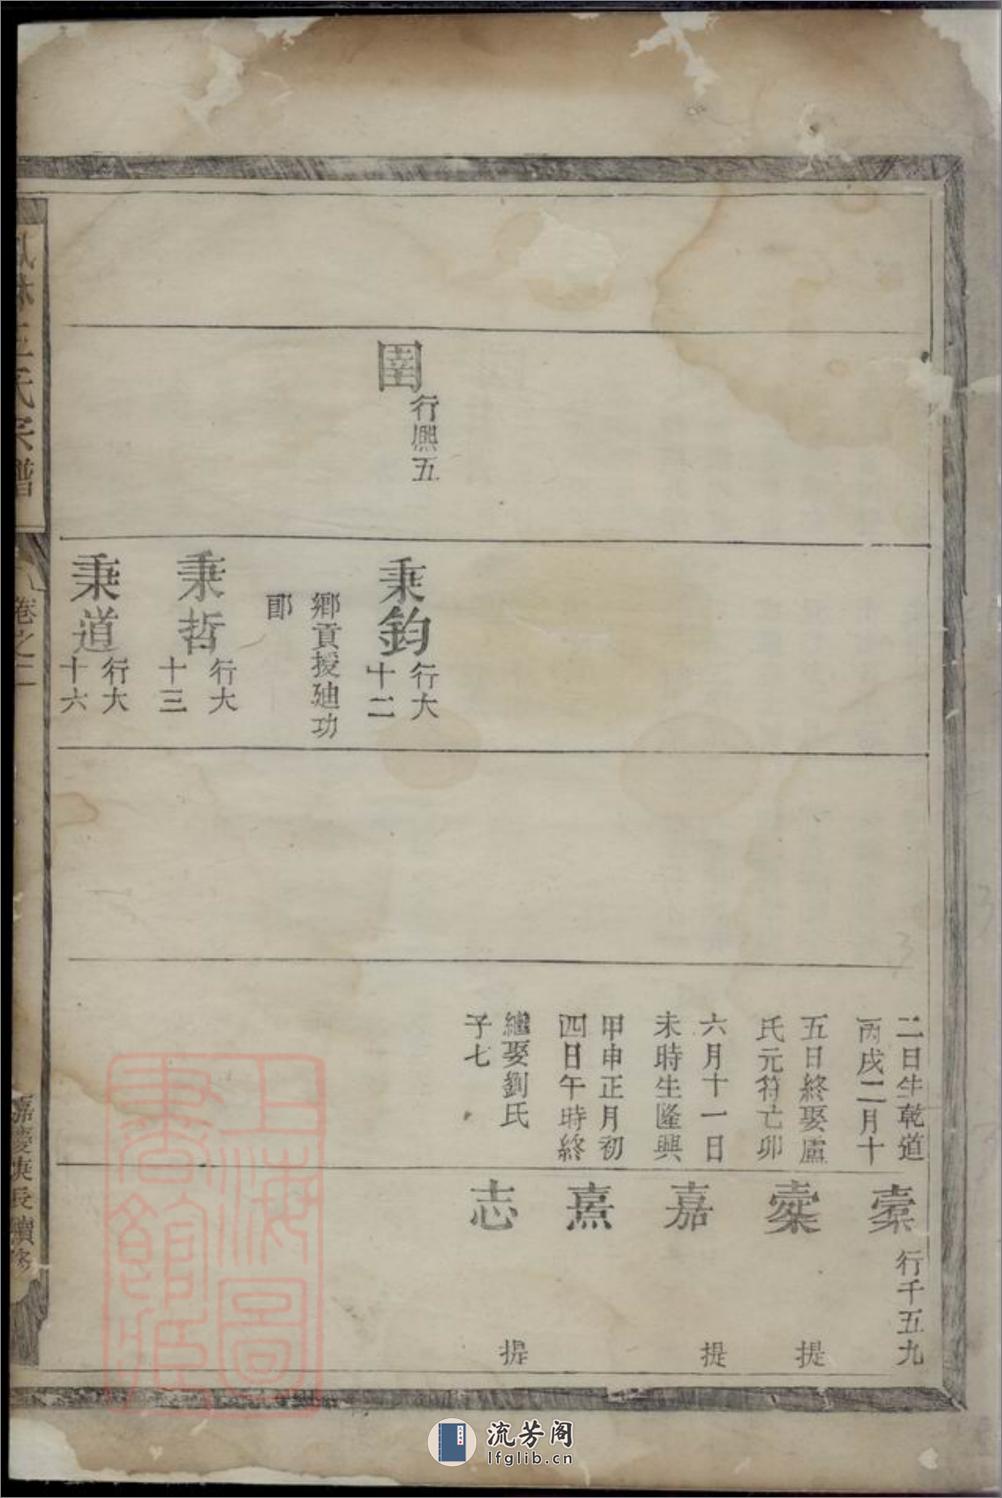 圉
行興五
秉鈞
行大
十二
鄉貢授廸功
郎
秉哲
行大
十三
秉道
行大
十六
二日生乾道
丙戌二月十
五日終娶盧
氏元符亡卯
六月十一日
未時生隆興
甲申正月初
四日午時終
繼娶劉氏
子七
行千五九
提
嘉
提
熹
志
提
鳳林王氏宗譜
卷之二
嘉慶庚辰續修
上海圖
書館藏
流芳阁
lfglib.cn